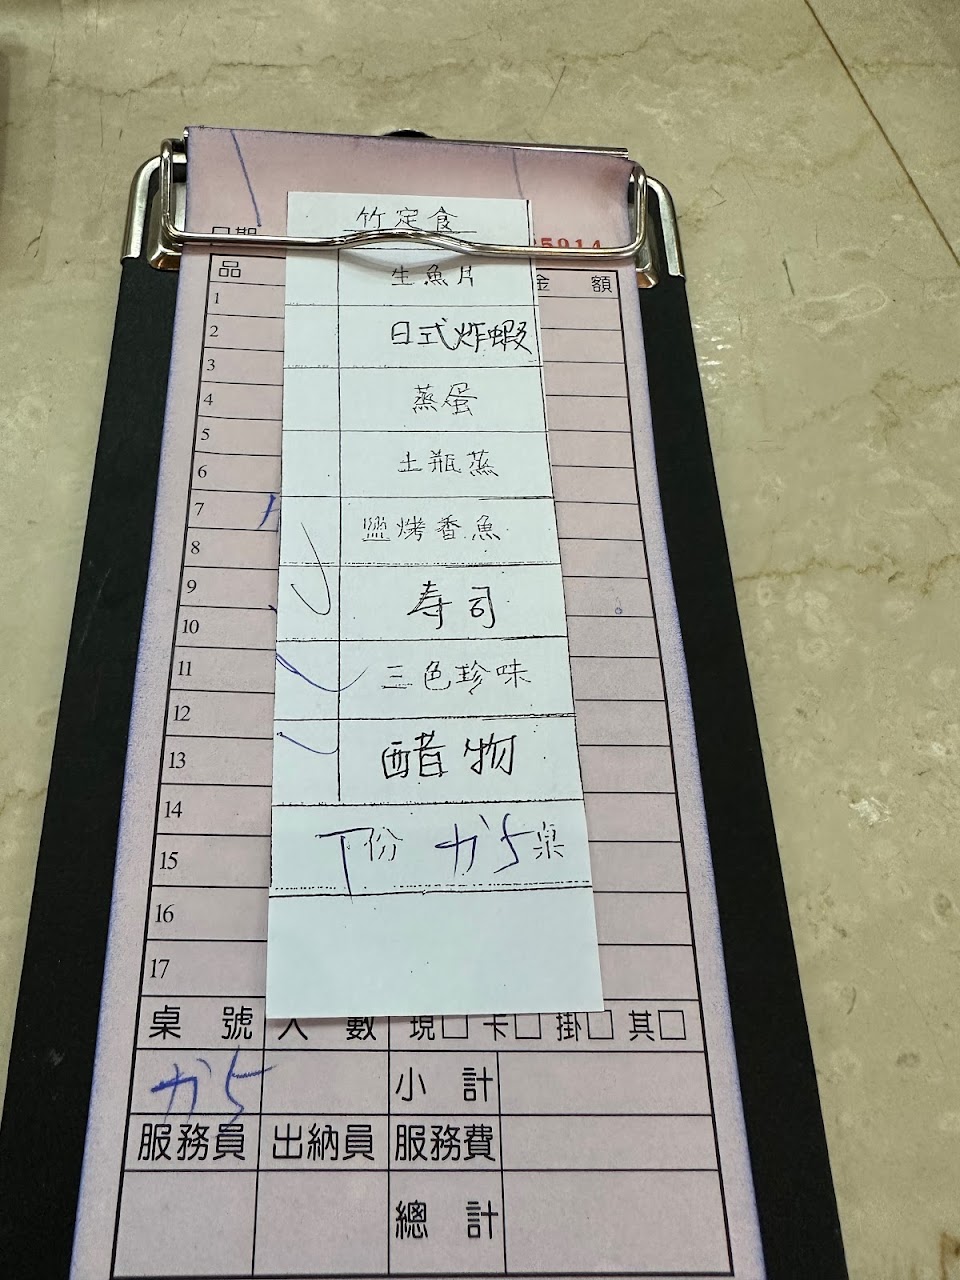 竹定食
生魚片
日式炸蝦
蒸蛋
土瓶蒸
鹽烤香魚
寿司
三色珍味
醋物
丁份 か5桌
日期
5914
品
金 額
1
2
3
4
5
6
7
8
9
10
11
12
13
14
15
16
17
桌 號 人 數 現□ 卡□ 掛□ 其□
か5 小 計
服務員 出納員 服務費
總 計